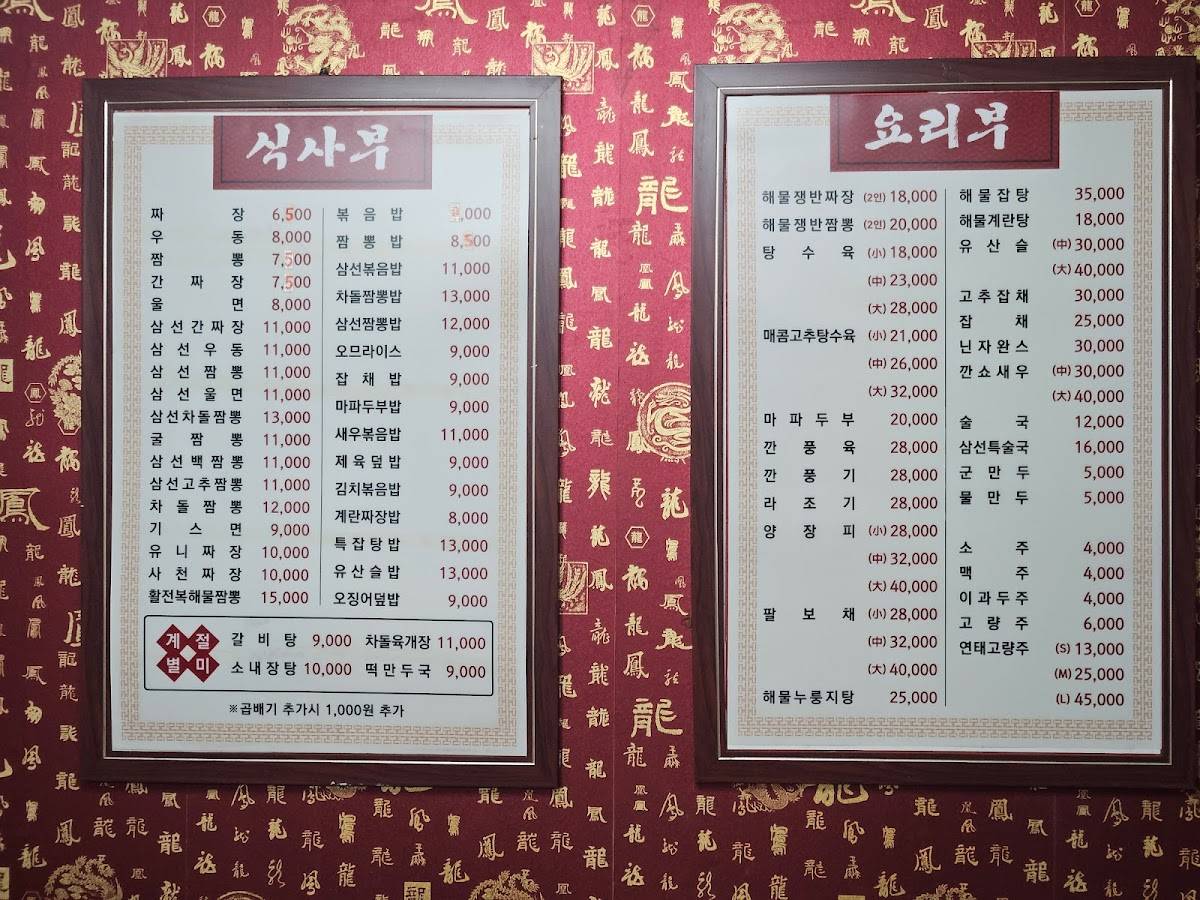 식사부
짜장 6,500
우동 8,000
짬뽕 7,500
간짜장 7,500
울면 8,000
삼선간짜장 11,000
삼선우동 11,000
삼선짬뽕 11,000
삼선울면 11,000
삼선차돌짬뽕 13,000
굴짬뽕 11,000
삼선백짬뽕 11,000
삼선고추짬뽕 11,000
차돌짬뽕 12,000
기스면 9,000
유니짜장 10,000
사천짜장 10,000
활전복해물짬뽕 15,000
볶음밥
짬뽕밥 8,500
삼선볶음밥 11,000
차돌짬뽕밥 13,000
삼선짬뽕밥 12,000
오므라이스 9,000
잡채밥 9,000
마파두부밥 9,000
새우볶음밥 11,000
제육덮밥 9,000
김치볶음밥 9,000
계란짜장밥 8,000
특잡탕밥 13,000
유산슬밥 13,000
오징어덮밥 9,000
계절
별미
갈비탕 9,000 차돌육개장 11,000
소내장탕 10,000 떡만두국 9,000
※곱배기 추가시 1,000원 추가
요리부
해물쟁반짜장 (2인) 18,000
해물쟁반짬뽕 (2인) 20,000
탕수육 (小) 18,000
(中) 23,000
(大) 28,000
매콤고추탕수육 (小) 21,000
(中) 26,000
(大) 32,000
마파두부 20,000
깐풍육 28,000
깐풍기 28,000
라조기 28,000
양장피 (小) 28,000
(中) 32,000
(大) 40,000
팔보채 (小) 28,000
(中) 32,000
(大) 40,000
해물누룽지탕 25,000
해물잡탕 35,000
해물계란탕 18,000
유산슬 (中) 30,000
(大) 40,000
고추잡채 30,000
잡채 25,000
닌자완스 30,000
깐쇼새우 (中) 30,000
(大) 40,000
술국 12,000
삼선특술국 16,000
군만두 5,000
물만두 5,000
소주 4,000
맥주 4,000
이과두주 4,000
고량주 6,000
연태고량주 (S) 13,000
(M) 25,000
(L) 45,000